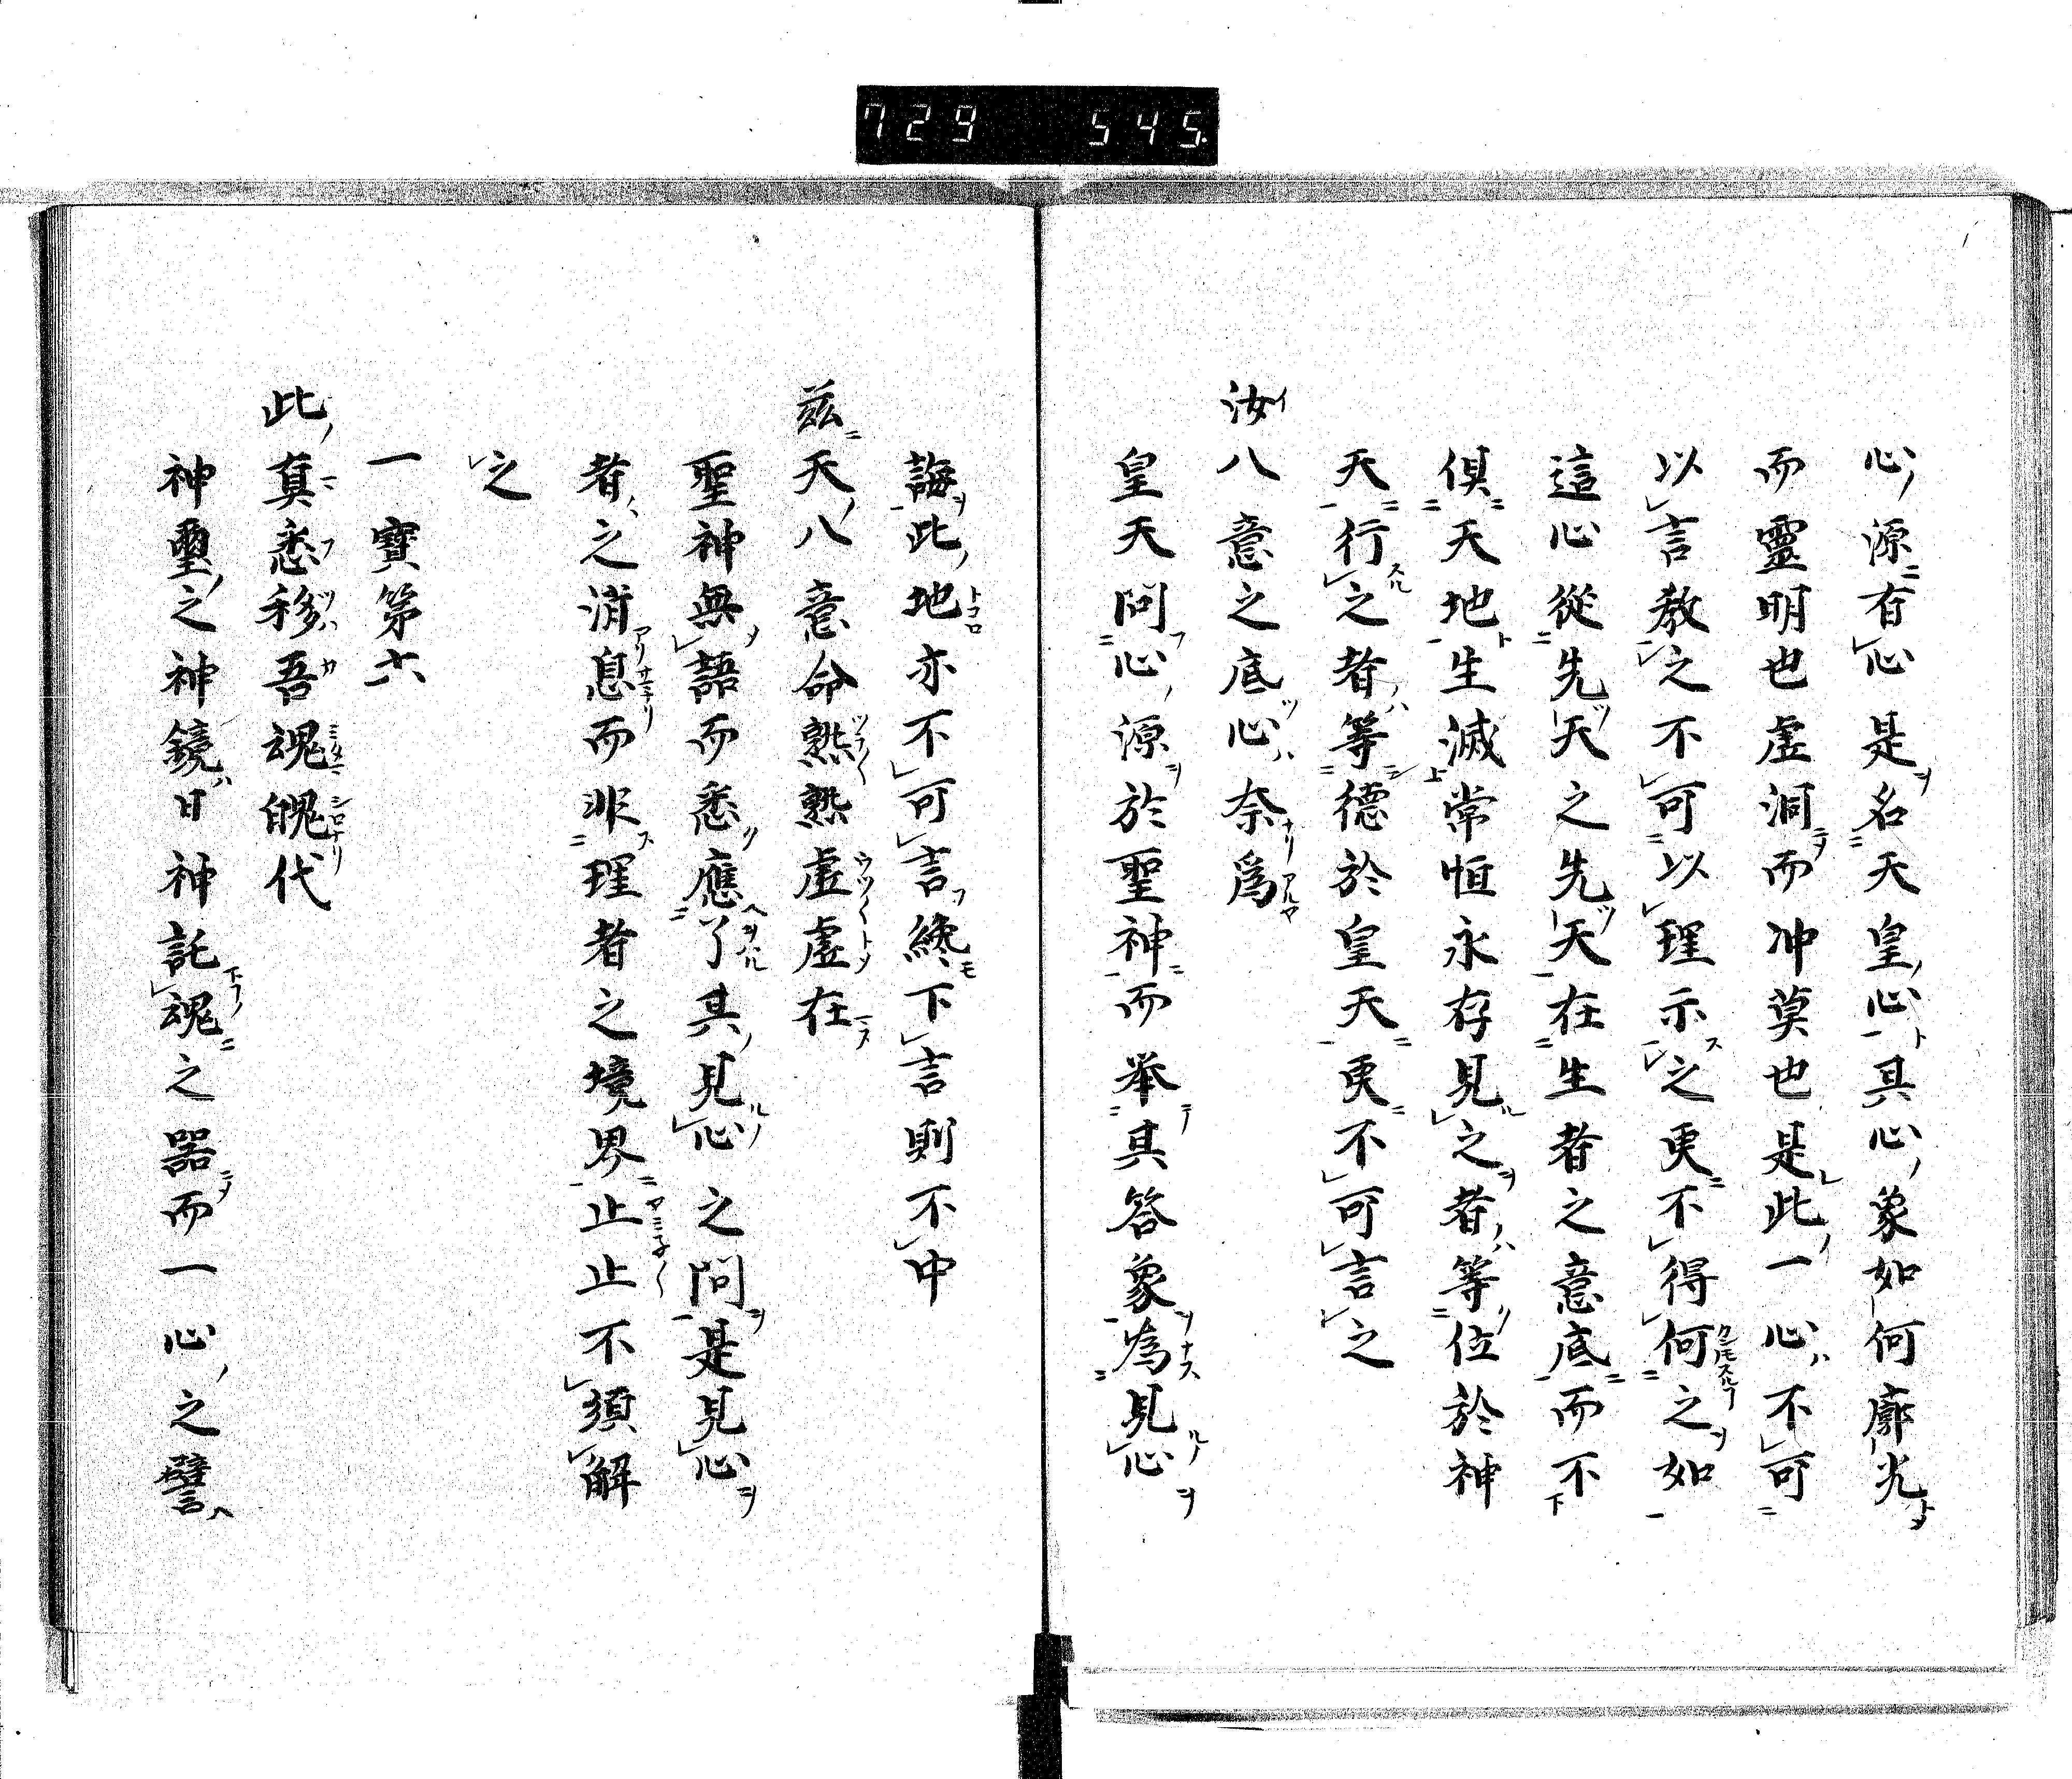 729 545
心源有心是名天皇心具心象如何廓光
而靈明也虛洞而冲莫也是此一心不可
以言教之不可以理示之更不得何之如
這心從先天之先天在生者之意底而不
俱天地生滅常恒永存見之者等位於神
天行之者等德於皇天更不可言之
汝八意之底心奈爲
皇天問心源於聖神而举其答象為見心
誨此地亦不可言終下言則不中
茲天八意命熟熟虛虛在
聖神無語而悉應了其見心之問是見心
者之消息而非理者之境界止止不須解
之
一寶第六
此真悉移吾魂魄代
神璽之神鏡日神託魂之器而一心之譬